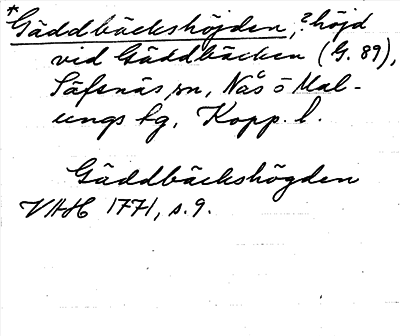 *Gäddbäckshöjden, ? höjd
vid Gäddbäcken (G. 89),
Säfsnäs sn, Nås o Mal-
ungs tg, Kopp. l.
Gäddbäckshögden
VHH 1771, s. 9.